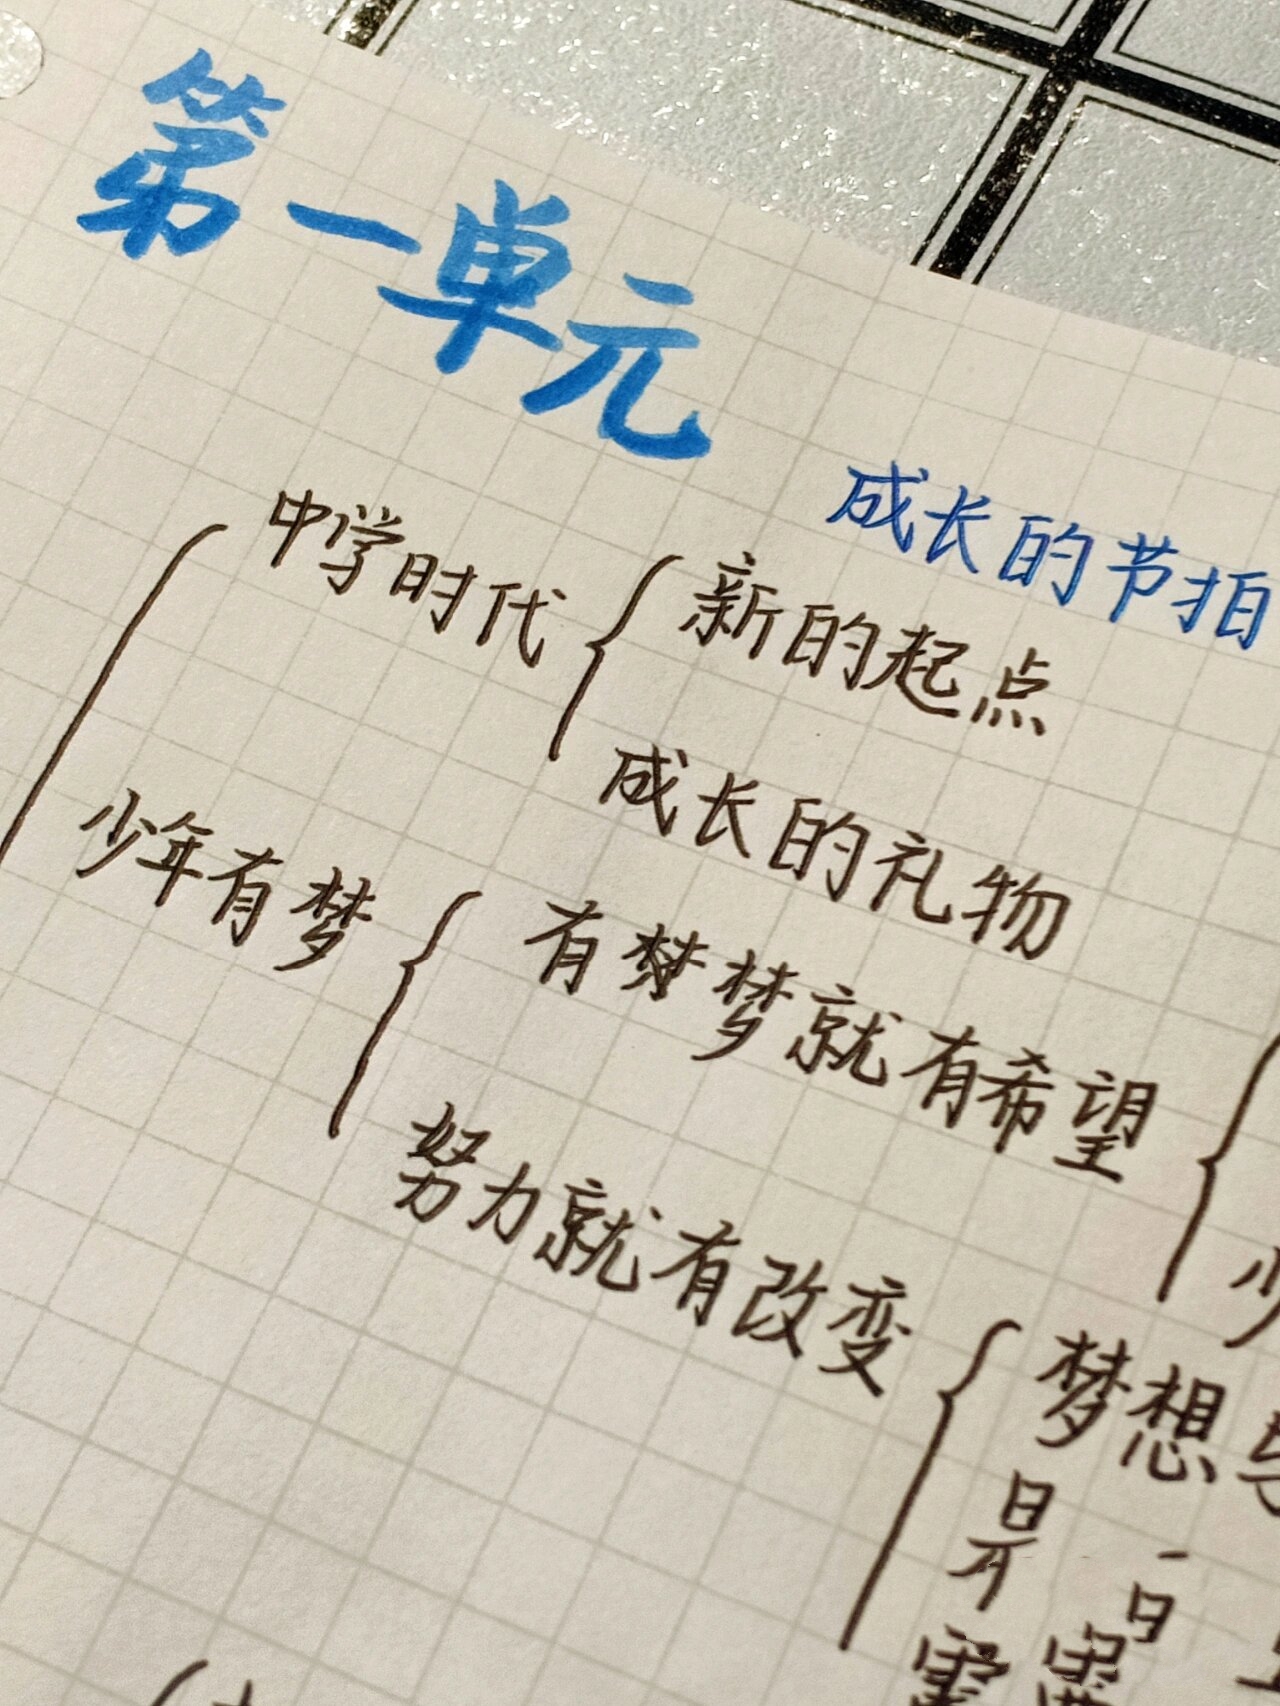 第一单元
成长的节拍
中学时代
新的起点
成长的礼物
少年有梦
有梦梦就有希望
少
努力就有改变
梦想